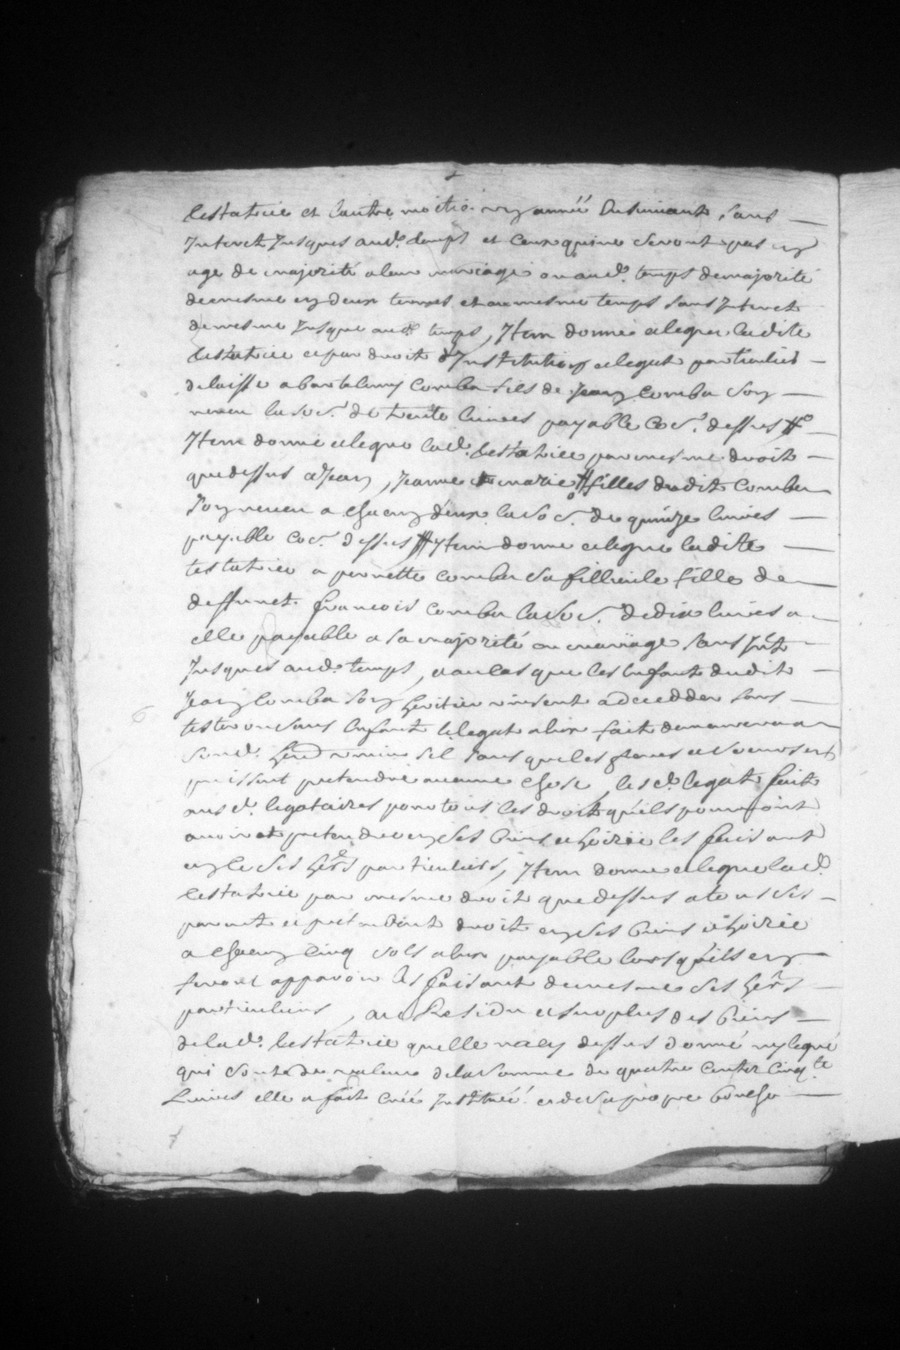 testatrice et lautre moitié en année Ensuivant sans
Interet Jusques aud. temps et ceux quine seront pas en
age de majorité a leur mariage ou aud. temps de majorité
de mesme en deux termes et au mesme temps sans Interet
de mesme Jusque aud temps, Item donne elegue ladite
testatrice et par droit d'Institution et legat particulier
delaisse a Bartelemy Comba fils de Jean Comba son
neveu la so.e de trente livres payable co.e dessus #
Item donne elegue lad. testatrice par mesme droit
que dessus a Jean, Jeanne et marie # filles dudit Comba
son neveu a chacun d'eux la so.e de quinze livres
payable co.e dessus # Item donne elegue ladite
testatrice a pernette Comba sa fillieule fille de
deffunct francois Comba la so.e de dix livres a
elle payable a sa majorité ou mariage sans Jnt
Jusques aud. temps, au cas que les Enfant dudit
Jean Comba son heritier vinsent a deceder sans
tester ou sans Enfant le legat a lieu fait demeurera a
sond. sans que les
puissent pretendre aucune chose, lesd. legat fait
ausd. legataires pour tous les droit quils pourroint
avoir et pretendre en ses biens et hoirie les faisant
en ce ses hers particuliers, Item donne elegue lad.
testatrice par mesme droit que dessus a tous ses
parent et pretendant droit en ses biens et hoirie
a chacun cinq sols a lieu payable lors quils en
feront apparoir les faisant de mesme ses hers
particuliers, au Residu et surplus des biens
de lad. testatrice quelle na cy dessus donné ny legué
qui sont de valeur de la somme de quatre cents cinq.te
Livres elle a fait créé Institué et de sa propre bouche